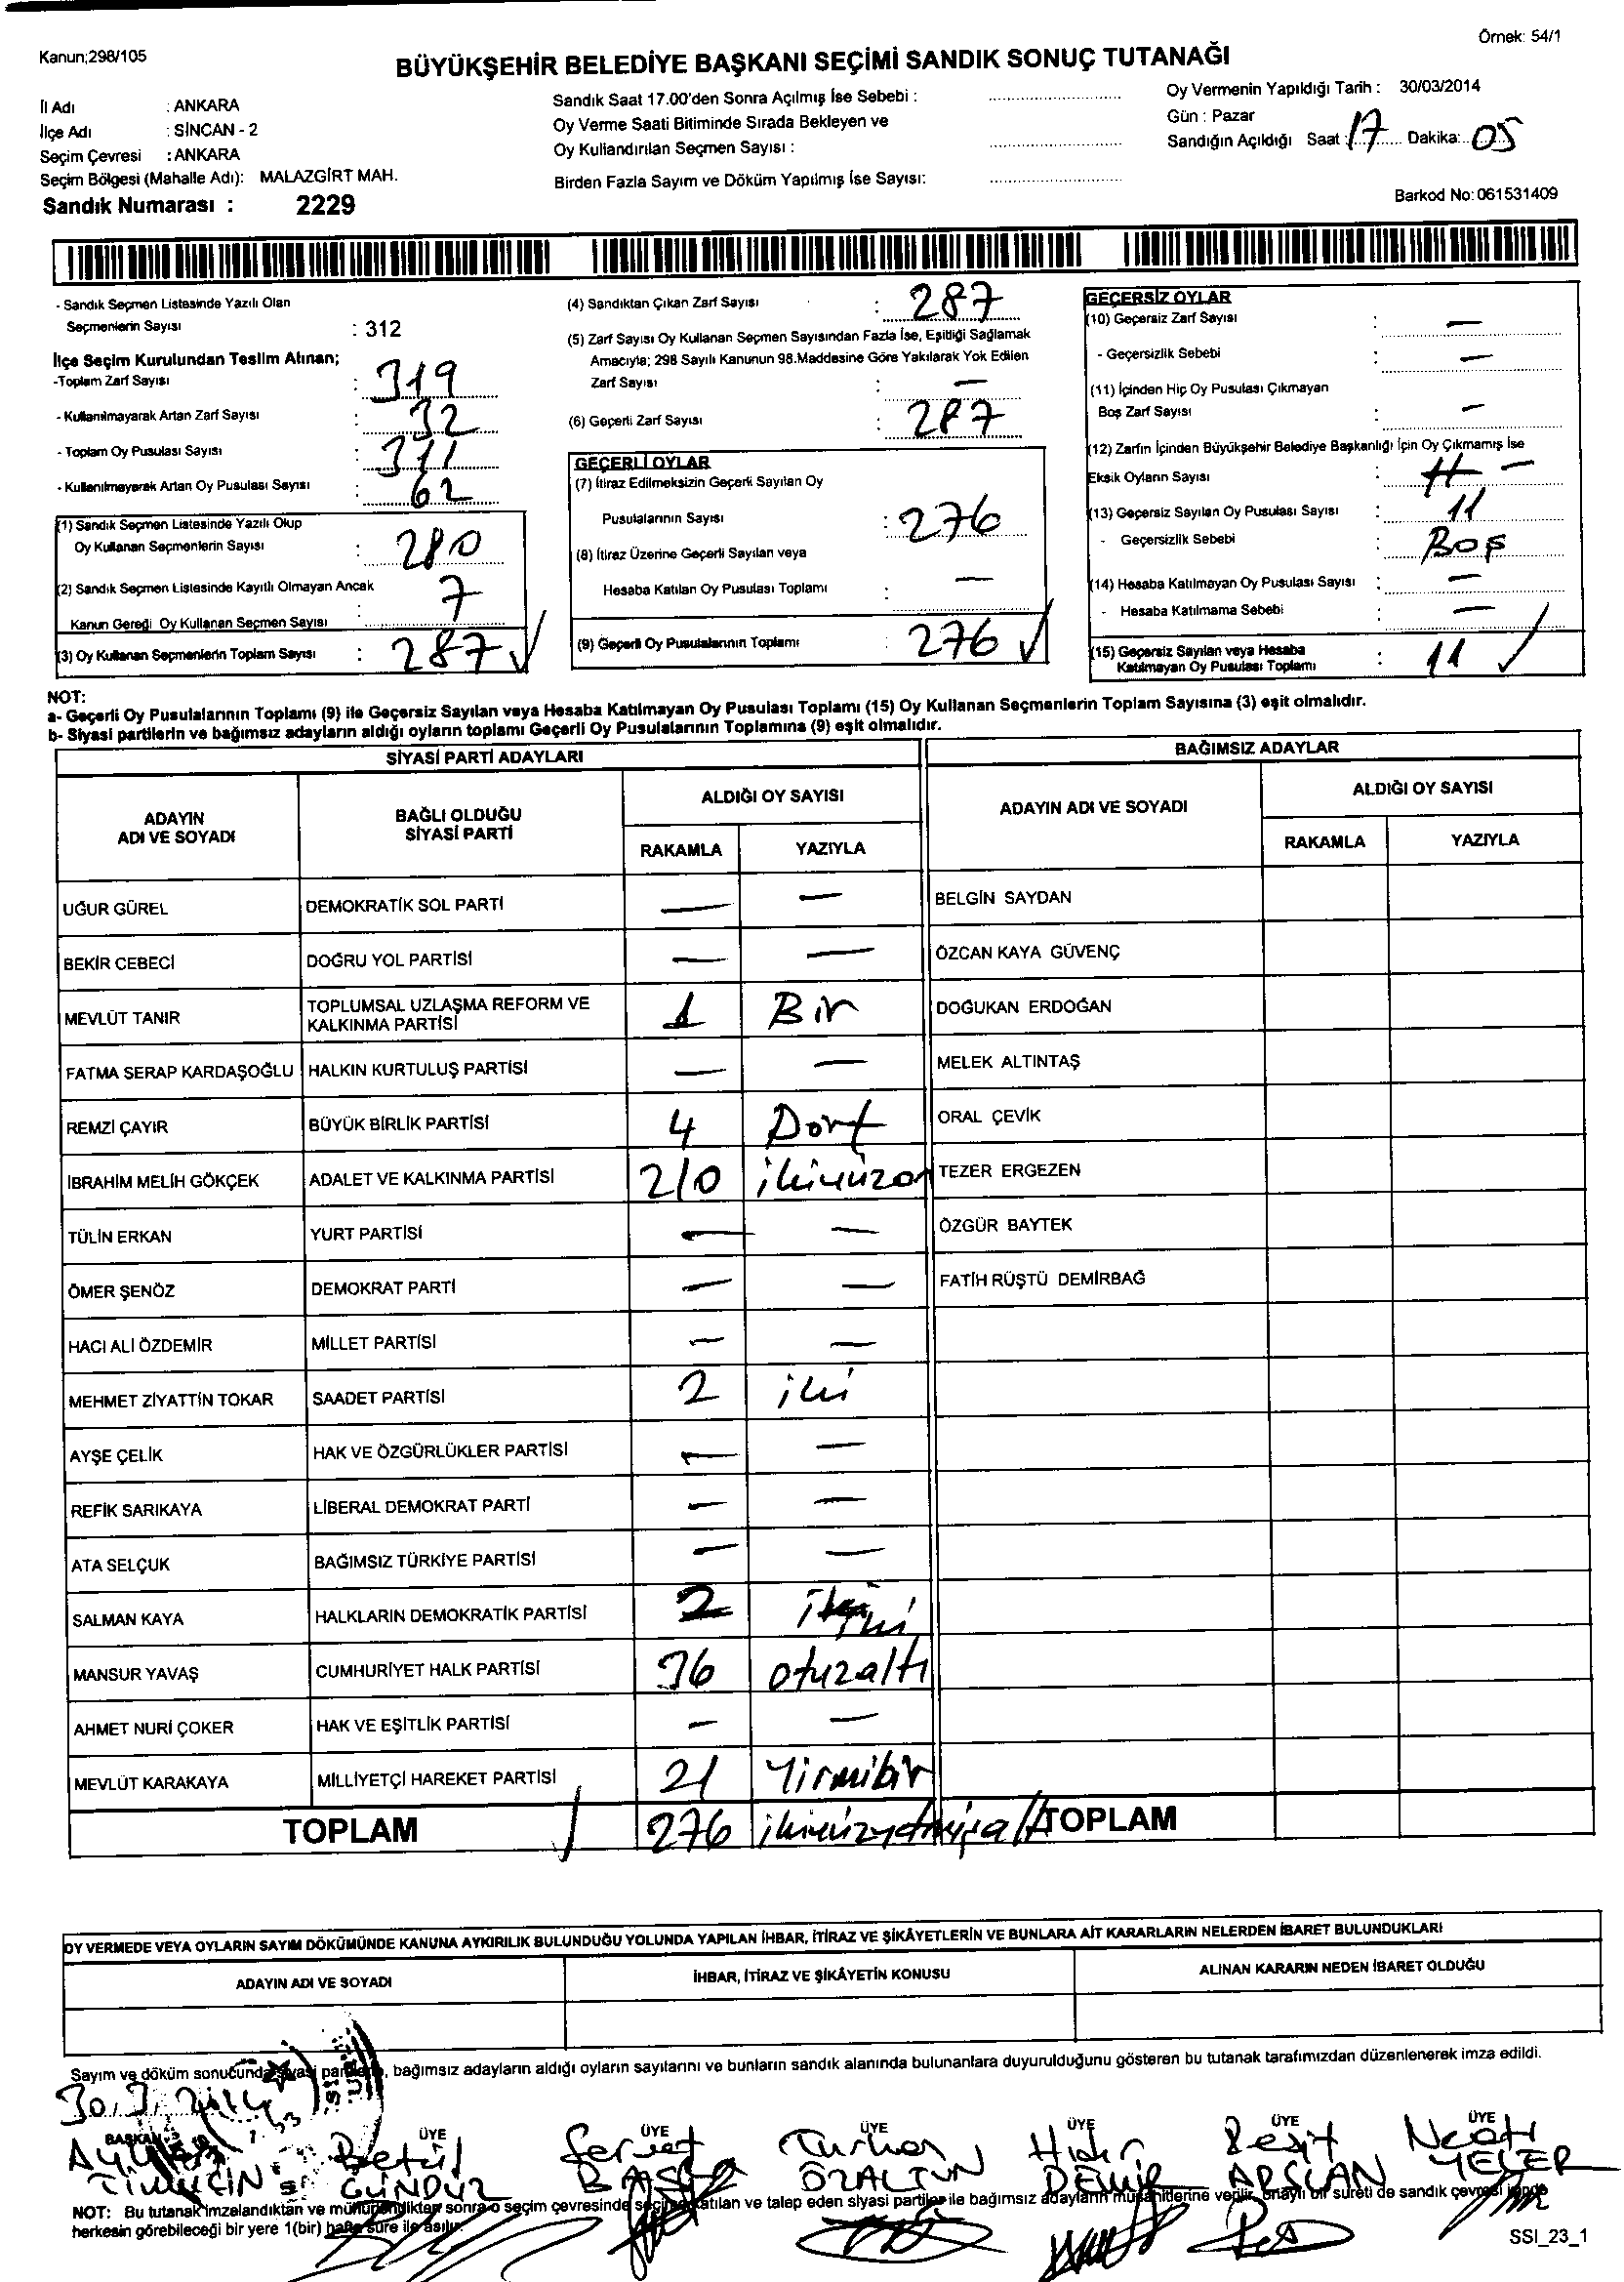 Örnek: 54/1
Kanun;298/105
BÜYÜKŞEHİR BELEDİYE BAŞKANI SEÇİMİ SANDIK SONUÇ TUTANAĞI
İl Adı : ANKARA
İlçe Adı : SİNCAN - 2
Seçim Çevresi : ANKARA
Seçim Bölgesi (Mahalle Adı): MALAZGİRT MAH.
Sandık Numarası : 2229
Sandık Saat 17.00'den Sonra Açılmış İse Sebebi :
Oy Verme Saati Bitiminde Sırada Bekleyen ve
Oy Kullandırılan Seçmen Sayısı :
Birden Fazla Sayım ve Döküm Yapılmış İse Sayısı:
Oy Vermenin Yapıldığı Tarih : 30/03/2014
Gün : Pazar
Sandığın Açıldığı Saat : 17 Dakika: 05
Barkod No: 061531409
- Sandık Seçmen Listesinde Yazılı Olan
Seçmenlerin Sayısı : 312
İlçe Seçim Kurulundan Teslim Alınan;
-Toplam Zarf Sayısı : 319
- Kullanılmayarak Artan Zarf Sayısı : 32
- Toplam Oy Pusulası Sayısı :
- Kullanılmayarak Artan Oy Pusulası Sayısı : 62
(1) Sandık Seçmen Listesinde Yazılı Olup
Oy Kullanan Seçmenlerin Sayısı : 280
(2) Sandık Seçmen Listesinde Kayıtlı Olmayan Ancak
Kanun Gereği Oy Kullanan Seçmen Sayısı : 7
(3) Oy Kullanan Seçmenlerin Toplam Sayısı : 287
(4) Sandıktan Çıkan Zarf Sayısı : 287
(5) Zarf Sayısı Oy Kullanan Seçmen Sayısından Fazla İse, Eşitliği Sağlamak
Amacıyla; 298 Sayılı Kanunun 98.Maddesine Göre Yakılarak Yok Edilen
Zarf Sayısı : —
(6) Geçerli Zarf Sayısı : 287
GEÇERLİ OYLAR
(7) İtiraz Edilmeksizin Geçerli Sayılan Oy
Pusulalarının Sayısı : 276
(8) İtiraz Üzerine Geçerli Sayılan veya
Hesaba Katılan Oy Pusulası Toplamı : —
(9) Geçerli Oy Pusulalarının Toplamı : 276
GEÇERSİZ OYLAR
(10) Geçersiz Zarf Sayısı : —
- Geçersizlik Sebebi : —
(11) İçinden Hiç Oy Pusulası Çıkmayan
Boş Zarf Sayısı : —
(12) Zarfın İçinden Büyükşehir Belediye Başkanlığı İçin Oy Çıkmamış İse
Eksik Oyların Sayısı : —
(13) Geçersiz Sayılan Oy Pusulası Sayısı : 11
- Geçersizlik Sebebi : Boş
(14) Hesaba Katılmayan Oy Pusulası Sayısı : —
- Hesaba Katılmama Sebebi : —
(15) Geçersiz Sayılan veya Hesaba
Katılmayan Oy Pusulası Toplamı : 11
NOT:
a- Geçerli Oy Pusulalarının Toplamı (9) ile Geçersiz Sayılan veya Hesaba Katılmayan Oy Pusulası Toplamı (15) Oy Kullanan Seçmenlerin Toplam Sayısına (3) eşit olmalıdır.
b- Siyasi partilerin ve bağımsız adayların aldığı oyların toplamı Geçerli Oy Pusulalarının Toplamına (9) eşit olmalıdır.
SİYASİ PARTİ ADAYLARI
ADAYIN ADI VE SOYADI BAĞLI OLDUĞU SİYASİ PARTİ ALDIĞI OY SAYISI RAKAMLA YAZIYLA
UĞUR GÜREL DEMOKRATİK SOL PARTİ — —
BEKİR CEBECİ DOĞRU YOL PARTİSİ — —
MEVLÜT TANIR TOPLUMSAL UZLAŞMA REFORM VE KALKINMA PARTİSİ 1 Bir
FATMA SERAP KARDAŞOĞLU HALKIN KURTULUŞ PARTİSİ — —
REMZİ ÇAYIR BÜYÜK BİRLİK PARTİSİ 4 Dört
İBRAHİM MELİH GÖKÇEK ADALET VE KALKINMA PARTİSİ 210 ikiyüzon
TÜLİN ERKAN YURT PARTİSİ — —
ÖMER ŞENÖZ DEMOKRAT PARTİ — —
HACI ALİ ÖZDEMİR MİLLET PARTİSİ — —
MEHMET ZİYATTİN TOKAR SAADET PARTİSİ 2 iki
AYŞE ÇELİK HAK VE ÖZGÜRLÜKLER PARTİSİ — —
REFİK SARIKAYA LİBERAL DEMOKRAT PARTİ — —
ATA SELÇUK BAĞIMSIZ TÜRKİYE PARTİSİ — —
SALMAN KAYA HALKLARIN DEMOKRATİK PARTİSİ 2 iki
MANSUR YAVAŞ CUMHURİYET HALK PARTİSİ 36 otuzaltı
AHMET NURİ ÇOKER HAK VE EŞİTLİK PARTİSİ — —
MEVLÜT KARAKAYA MİLLİYETÇİ HAREKET PARTİSİ 21 Yirmibir
TOPLAM 276 ikiyüzyetmişaltı
BAĞIMSIZ ADAYLAR
ADAYIN ADI VE SOYADI ALDIĞI OY SAYISI RAKAMLA YAZIYLA
BELGİN SAYDAN
ÖZCAN KAYA GÜVENÇ
DOĞUKAN ERDOĞAN
MELEK ALTINTAŞ
ORAL ÇEVİK
TEZER ERGEZEN
ÖZGÜR BAYTEK
FATİH RÜŞTÜ DEMİRBAĞ
TOPLAM
OY VERMEDE VEYA OYLARIN SAYIM DÖKÜMÜNDE KANUNA AYKIRILIK BULUNDUĞU YOLUNDA YAPILAN İHBAR, İTİRAZ VE ŞİKÂYETLERİN VE BUNLARA AİT KARARLARIN NELERDEN İBARET BULUNDUKLARI
ADAYIN ADI VE SOYADI İHBAR, İTİRAZ VE ŞİKÂYETİN KONUSU ALINAN KARARIN NEDEN İBARET OLDUĞU
Sayım ve döküm sonucunda siyasi partilerin, bağımsız adayların aldığı oyların sayılarını ve bunların sandık alanında bulunanlara duyurulduğunu gösteren bu tutanak tarafımızdan düzenlenerek imza edildi.
30.3.2014
BAŞKAN ÜYE ÜYE ÜYE ÜYE ÜYE ÜYE
Betül Servet Turhan Hıdır Reşit Necati
GÜNDÜZ ÖZALTUN DEMİR ARSLAN YEŞER
NOT: Bu tutanak imzalandıktan ve mühürlendikten sonra o seçim çevresinde seçime katılan ve talep eden siyasi partiler ile bağımsız adayların müşahitlerine verilir, onaylı bir sureti de sandık çevresi içinde
herkesin görebileceği bir yere 1(bir) hafta süre ile asılır.
SSI_23_1